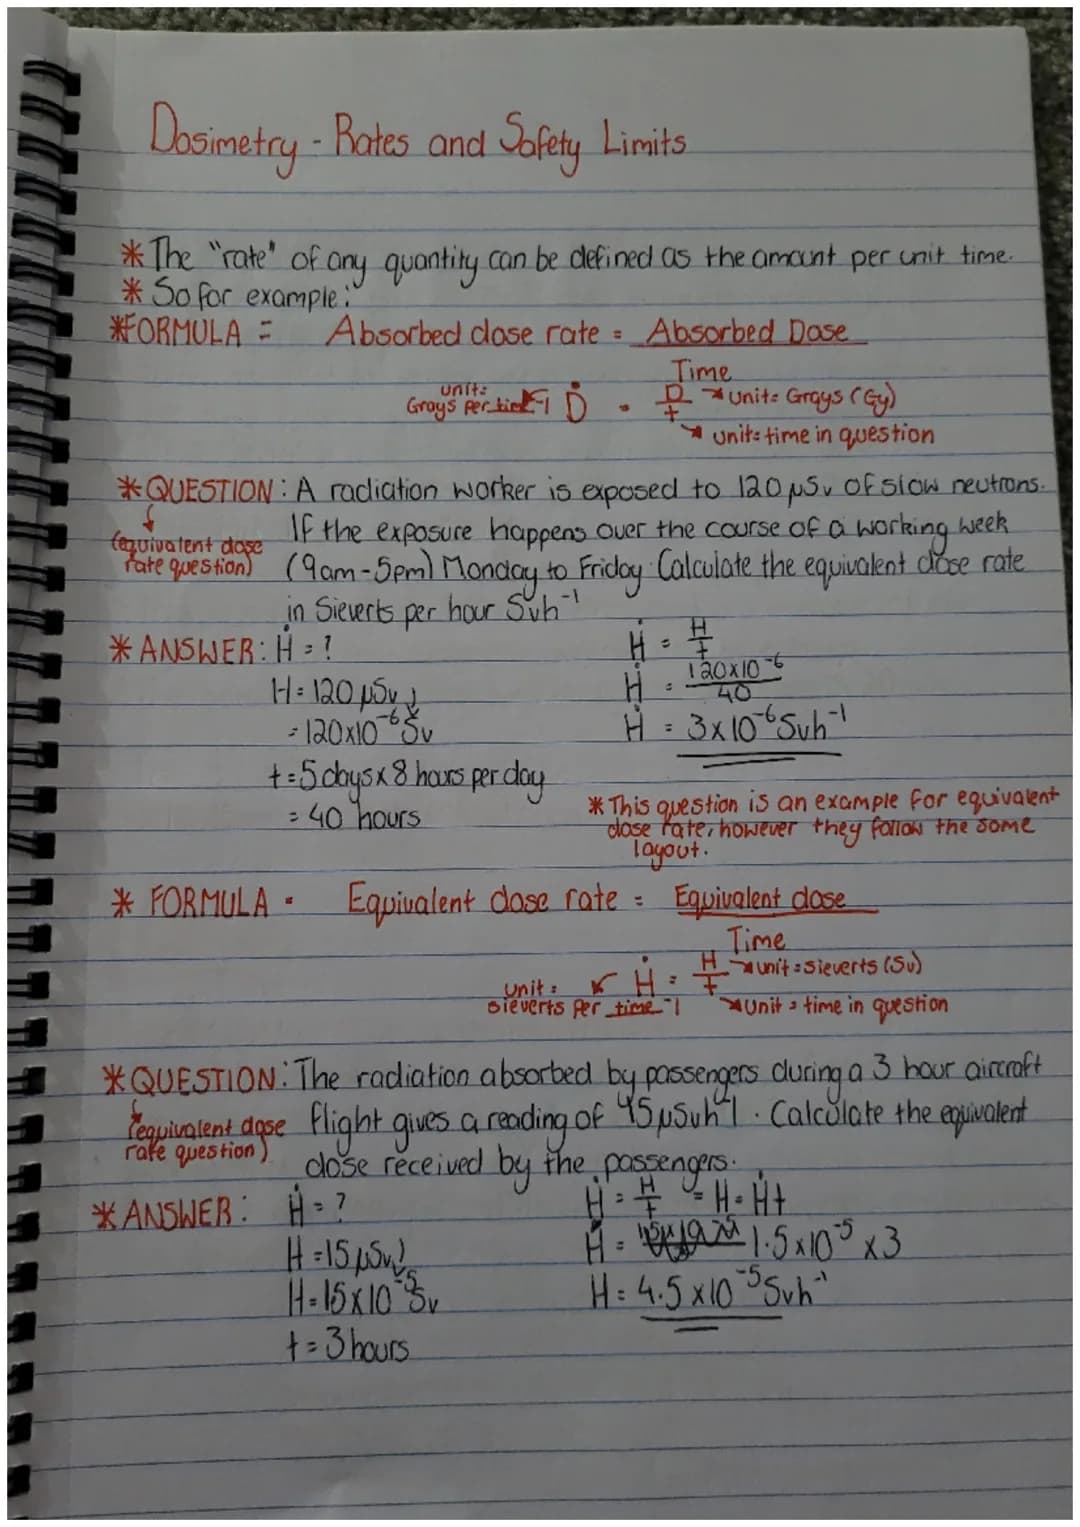 Dosimetry - Rates and Safety Limits
* The "rate" of any quantity can be defined as the amount per unit time.
* So for example:
*FORMULA = Absorbed dose rate = Absorbed Dose
Time
unit: Grays per time-1 Ḋ = D/t unit= Grays (Gy)
unit: time in question
* QUESTION: A radiation worker is exposed to 120 μSv of slow neutrons.
(equivalent dose rate question)
If the exposure happens over the course of a working week
(9am-5pm) Monday to Friday. Calculate the equivalent dose rate
in Sieverts per hour Svh-1
* ANSWER: Ḣ = ?
H = 120 μSv
= 120x10-6 Sv
t = 5 days x 8 hours per day
= 40 hours
Ḣ = H/t
Ḣ = 120x10-6/40
Ḣ = 3x10-6 Svh-1
* This question is an example for equivalent
dose rate, however they follow the same
layout.
* FORMULA = Equivalent dose rate = Equivalent dose
Time
unit: Sieverts per time-1 Ḣ = H/t unit = Sieverts (Sv)
unit = time in question
* QUESTION: The radiation absorbed by passengers during a 3 hour aircraft
(equivalent dose rate question)
flight gives a reading of μSvh-1. Calculate the equivalent
dose received by the passengers.
* ANSWER: Ḣ = ?
H = 15 μSv
H = 15x10-5 Sv
t = 3 hours
Ḣ = H/t = H = Ḣt
Ḣ = 1.5x10-5 x3
H = 4.5 x10-5 Svh-1